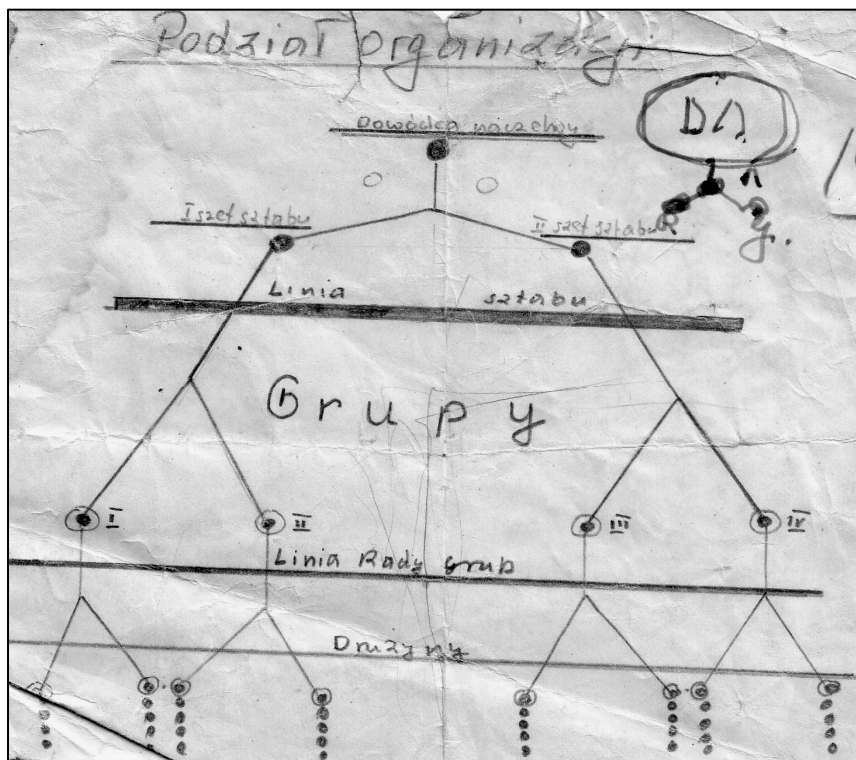 Podział organizacji
Dowódca naczelny
I szef sztabu
II szef sztabu
Linia sztabu
Grupy
I II III IV
Linia Rady Grup
Drużyny